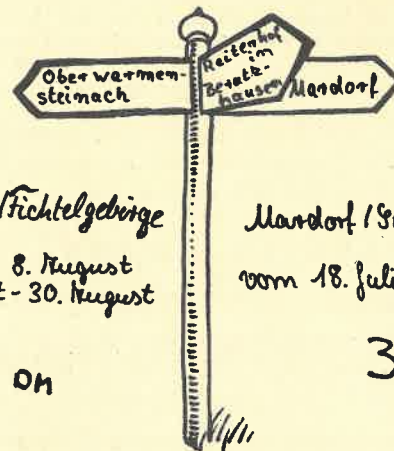 Oberwarmen-
steinach
Reitenhof
im
Beratz-
hausen
Mardorf
/Fichtelgebirge
8. August
- 30. August
DM
Mardorf /
vom 18. Juli
3